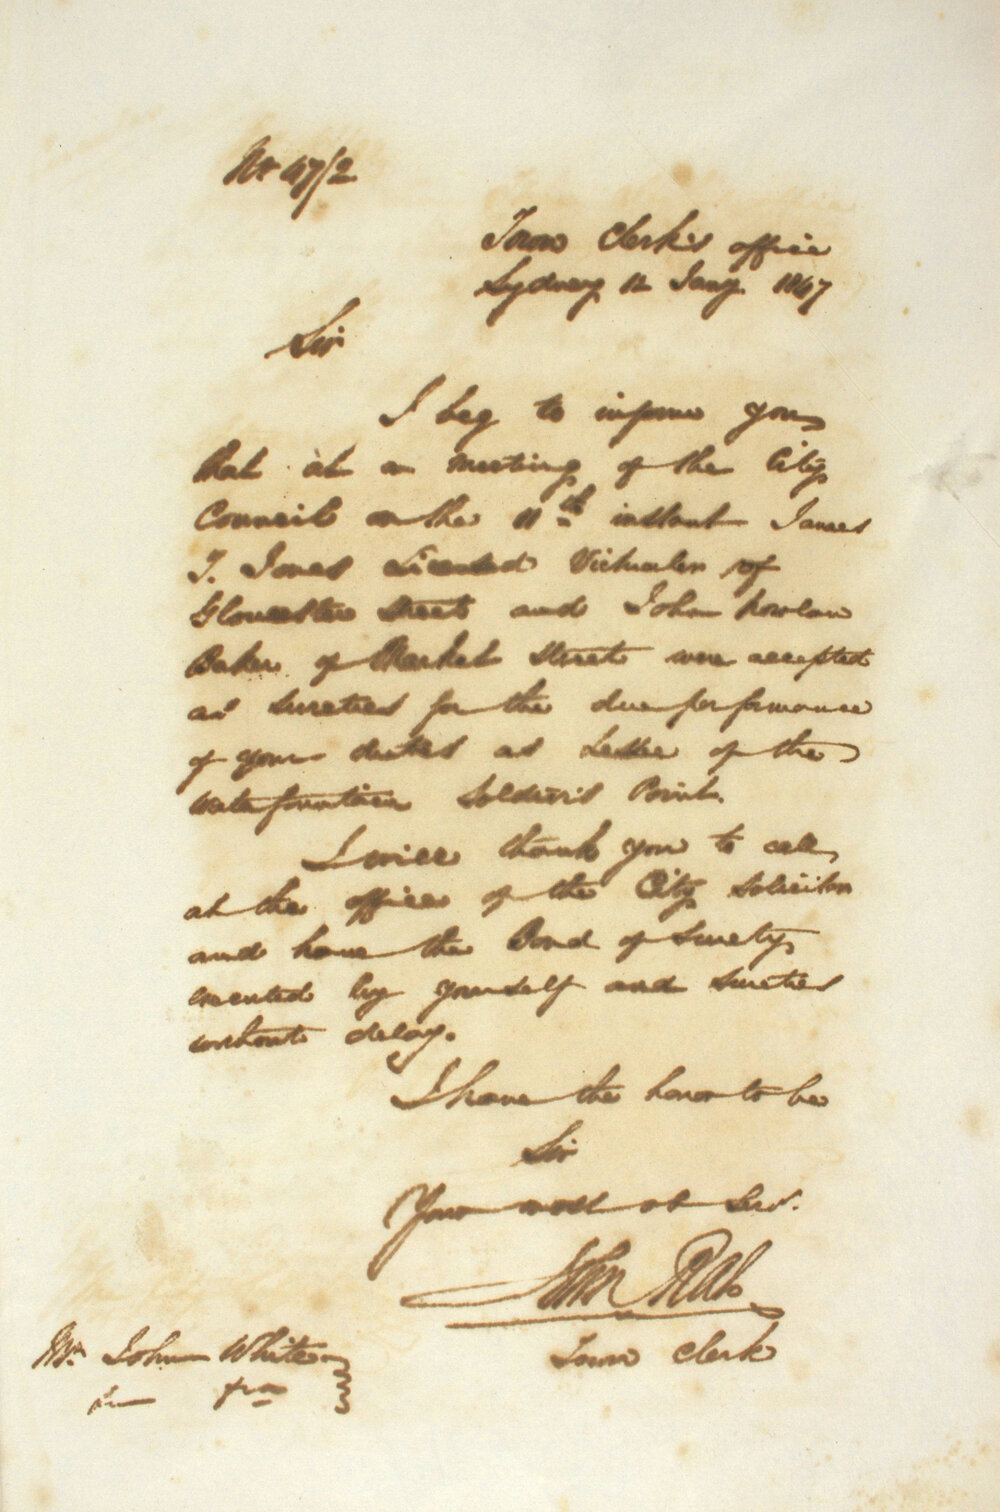 No 47/2
Town Clerk's office
Sydney 12 Jany 1847
Sir
I beg to inform you
that at a meeting of the City
Council on the 11th instant James
T. Jones Licensed Victualler of
Gloucester Street and John Rowlan
Baker of Market Street were accepted
as sureties for the due performance
of your duties as Lessee of the
Waterfountain Soldiers Point.
I will thank you to call
at the office of the City Solicitor
and have the Bond of Surety
executed by yourself and sureties
without delay.
I have the honor to be
Sir
Your most ob Servt.
John Rae
Town Clerk
Mr. John White